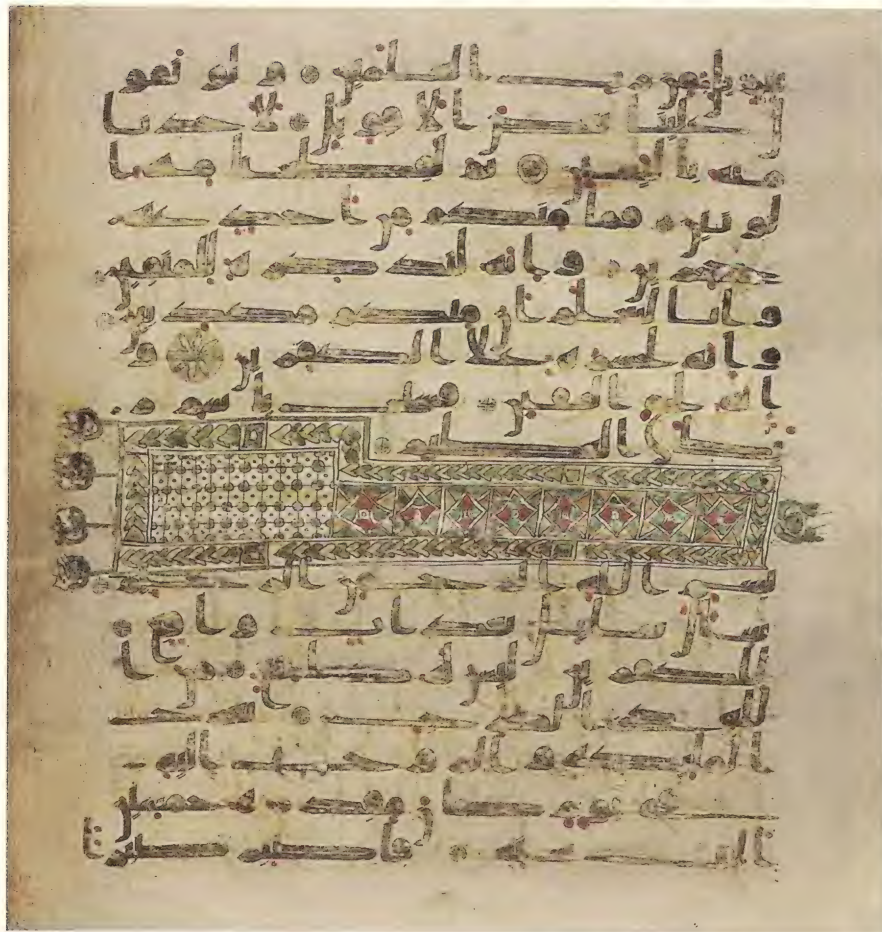 تنزيل من رب العلمين ولو تقو
ل علينا بعض الاقويل لاخذنا
منه باليمين ثم لقطعنا منه ا
لوتين فما منكم من احد عنه
حجزين وانه لتذكرة للمتقين
وانا لنعلم ان منكم مكذبين
وانه لحسرة على الكفرين و
انه لحق اليقين فسبح باسم ر
بك العظيم
بسم الله الرحمن الرحيم
سال سايل بعذاب واقع
للكفرين ليس له دافع من ا
لله ذي المعارج تعرج
الملئكة والروح اليه في يو
م كان مقداره خمسين
الف سنة فاصبر صبرا